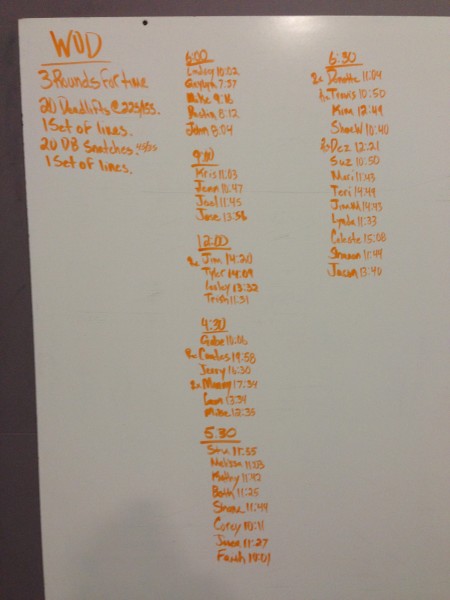 WOD
3 Rounds for time
20 Deadlifts @ 225/155.
1 Set of lines.
20 DB Snatches. 45/25
1 Set of lines.
6:00
Lindsey 10:02
7:57
Mike 9:16
8:12
John 8:04
9:00
Kris 11:03
Jenn 10:47
Joel 11:45
Jose 13:56
12:00
Rx Jim 14:20
Tyler 14:09
13:32
Trish 11:31
4:30
Gabe 10:06
Rx 19:58
Jerry 16:30
Rx Manny 17:34
13:34
Mike 12:35
5:30
Stu 11:55
Melissa 11:03
Kathy 11:42
Beth 11:25
Shane 11:49
Corey 10:11
11:27
Faith 14:01
6:30
Rx Donatte 11:04
Rx Travis 10:50
Kim 12:49
Shae W 10:40
Rx Dez 12:21
Suz 10:50
Mari 11:43
Teri 14:49
14:43
Lynda 11:33
Celeste 15:08
Shannon 11:49
Jason 13:40